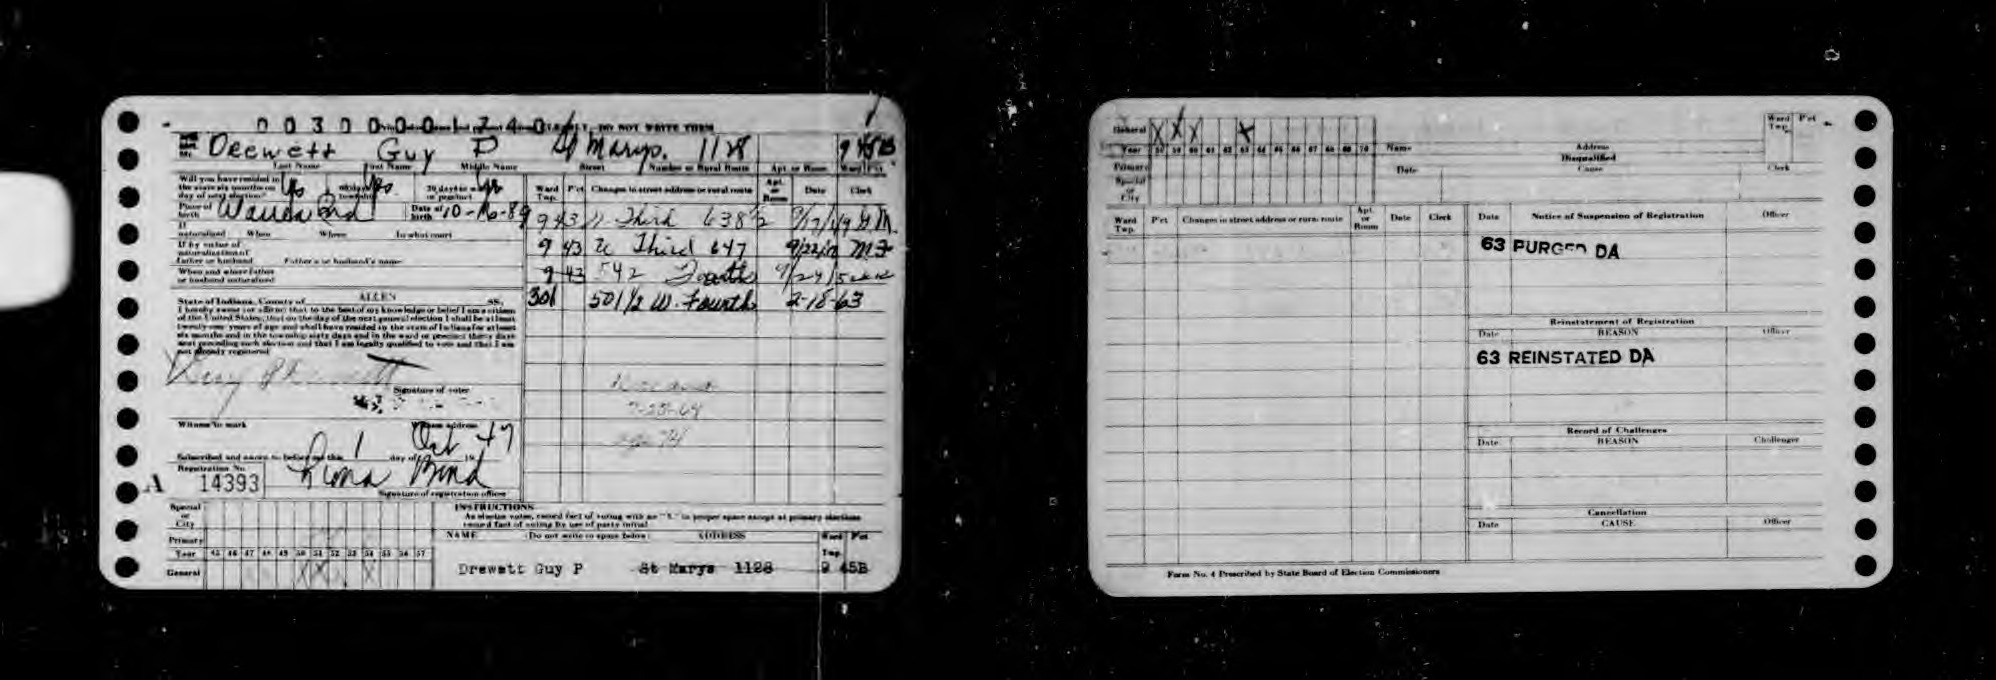 00300001740
PLEASE DO NOT WRITE THEM
Drewett Guy P St Marys. 1128 9 45B
Last Name First Name Middle Name Street Number or Rural Route Apt. or Room Ward Pct
Will you have resided in
the state six months on
day of next election? Yes Yes Yes
Place of birth Warren Ind Date of birth 10-16-89
If naturalized When Where In what court
If by virtue of
naturalization of
Father or husband Father's or husband's name
When and where father
or husband naturalized
State of Indiana, County of ALLEN SS:
I hereby swear (or affirm) that to the best of my knowledge or belief I am a citizen
of the United States; that on the day of the next general election I shall be at least
twenty-one years of age and shall have resided in the state of Indiana for at least
six months and in the township sixty days and in the ward or precinct thirty days
next preceding such election and that I am legally qualified to vote and that I am
not already registered
Signature of voter
Witness to mark Witness address
Subscribed and sworn to before me this 1 day of Oct 19 47
Registration No.
A 14393
Bond
Signature of registration officer
Ward Twp. P'ct Changes in street address or rural route Apt. or Room Date Clerk
9 43 W Third 638 1/2
9 43 W Third 647 9/22
9 43 542 Fourth
301 501 1/2 W. Fourth 2-18-63
7-25-64
age 74
Special or City
Primary
Year 45 46 47 48 49 50 51 52 53 54 55 56 57
General X X X
INSTRUCTIONS
At election voter, record fact of voting with an "X" in proper space except at primary elections
record fact of voting by use of party initial
NAME (Do not write in space below) ADDRESS Ward Twp. P'ct
Drewett Guy P St Marys 1128 9 45B
General X X X X
Year 58 59 60 61 62 63 64 65 66 67 68 69 70
Primary
Special or City
Name Address Ward Twp. P'ct
Disqualified
Date Cause Clerk
Ward Twp. P'ct Changes in street address or rural route Apt. or Room Date Clerk
Date Notice of Suspension of Registration Officer
63 PURGED DA
Reinstatement of Registration
Date REASON Officer
63 REINSTATED DA
Record of Challenges
Date REASON Challenger
Cancellation
Date CAUSE Officer
Form No. 4 Prescribed by State Board of Election Commissioners